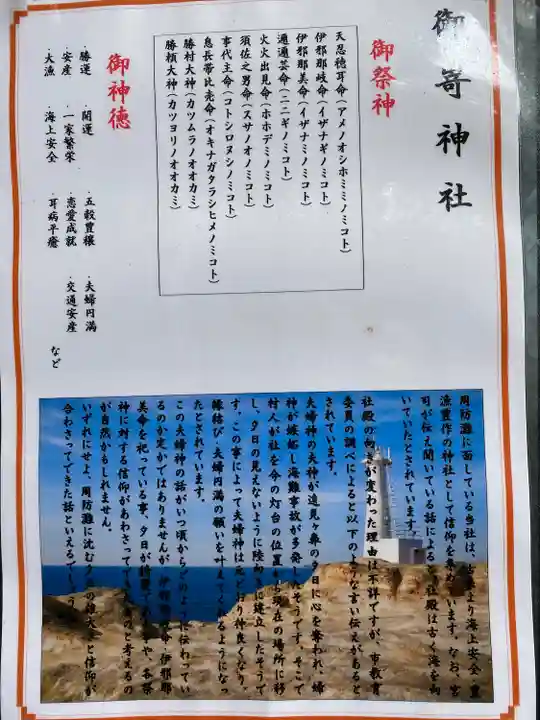 御嵜神社
御祭神
天忍穂耳命(アメノオシホミミノミコト)
伊邪那岐命(イザナギノミコト)
伊邪那美命(イザナミノミコト)
邇邇芸命(ニニギノミコト)
火火出見命(ホホデミノミコト)
須佐之男命(スサノオノミコト)
事代主命(コトシロヌシノミコト)
息長帯比売命(オキナガタラシヒメノミコト)
勝村大神(カツムラノオオカミ)
勝頼大神(カツヨリノオオカミ)
御神徳
・勝運 ・開運 ・五穀豊穣 ・夫婦円満
・安産 ・一家繁栄 ・恋愛成就 ・交通安産
・大漁 ・海上安全 ・耳病平癒 など
周防灘に面している当社は、古来より海上安全、豊
漁豊作の神社として信仰を集めています。なお、宮
司が伝え聞いている話によると、社殿は古く海を向
いていたとされています。
社殿の向きが変わった理由は不詳ですが、市教育
委員の調べによると以下のような言い伝えがあると
されています。
夫婦神の夫神が遠見ヶ鼻の夕日に心を奪われ、婦
神が嫉妬し海難事故が多発したそうです。そこで
村人が社を今の灯台の位置から現在の場所に移
し、夕日の見えないように陸向きに建立したそうで
す。この事によって夫婦神は元どおり仲良くなり、
縁結び・夫婦円満の願いを叶えてくれるようになっ
たとされています。
この夫婦神の話がいつ頃からどのように伝わってい
るのか定かではありませんが、伊邪那岐命・伊邪那
美命を祀っている事、夕日が綺麗である事や、各祭
神に対する信仰があわさってできたものと考えるの
が自然かもしれません。
いずれにせよ、周防灘に沈む夕日の雄大さと信仰が
合わさってできた話といえるでしょう。